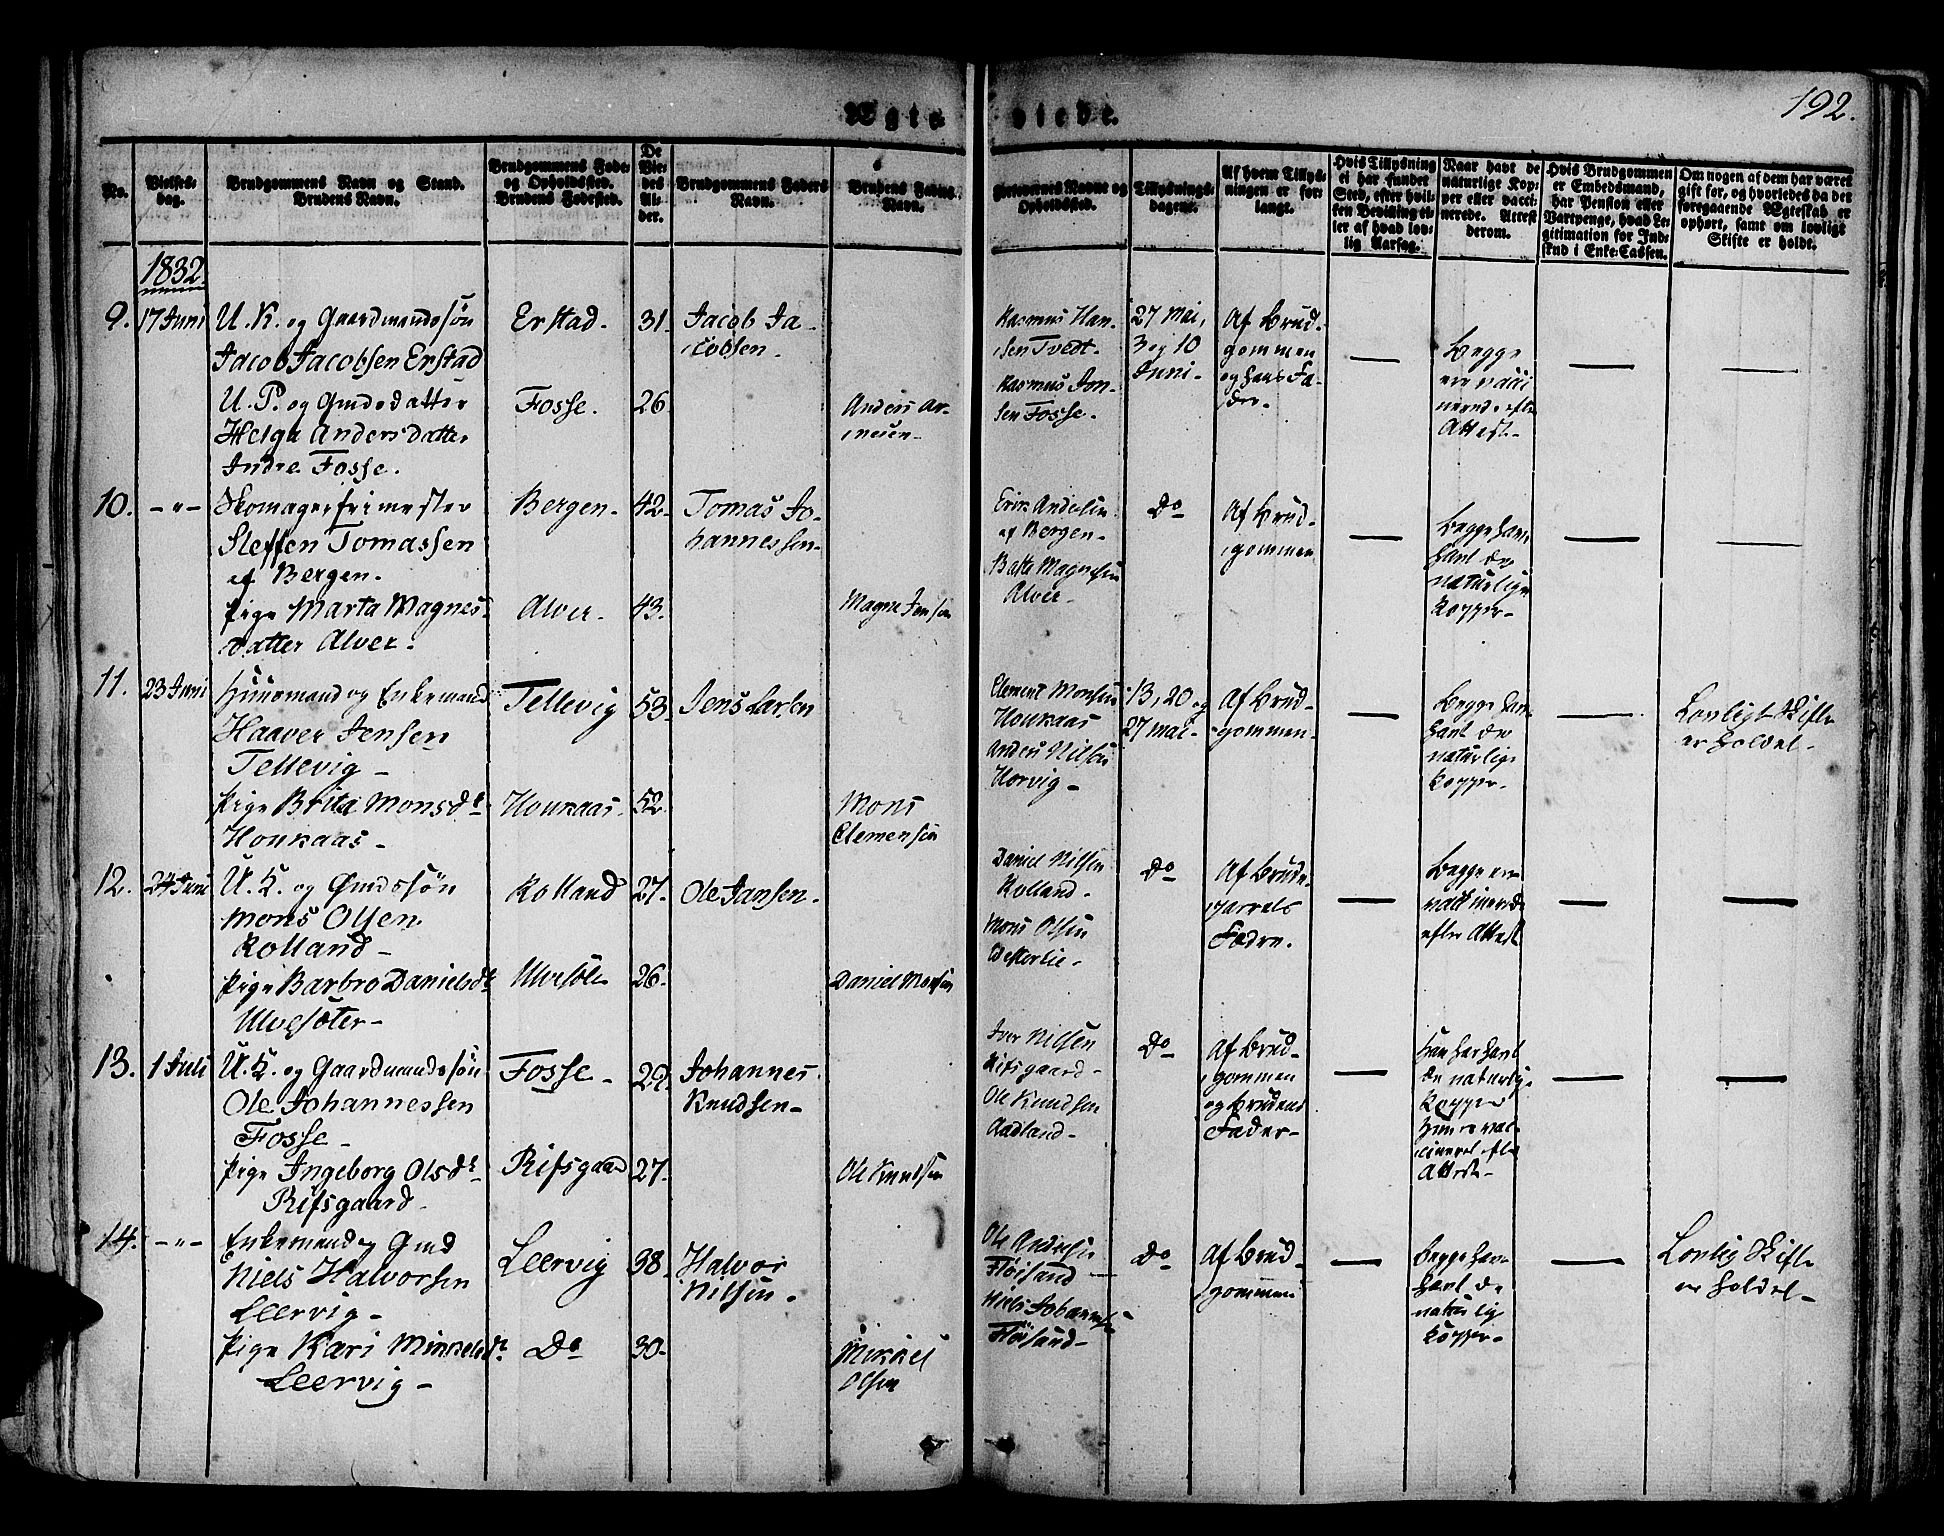 192.
Ægte viede.
No.
Vielses-
dag.
Brudgommens Navn og Stand.
Brudens Navn.
Brudgommens Føde-
og Opholdssted.
Brudens Fødested.
De
Vie-
des
Al-
der.
Brudgommens Faders
Navn.
Brudens Faders
Navn.
Forlovernes Navne og
Opholdssted.
Tillysnings-
dagene.
Af hvem Tillys-
ningen er for-
langt.
Hvis Tillysning
ei har fundet
Sted, efter hvil-
ken Bevilling el-
ler af hvad lov-
lig Aarsag.
Naar havt de
naturlige Kop-
per eller vacci-
nerede. Attest
derom.
Hvis Brudgommen
er Embedsmand,
har Pension eller
Vartpenge, hvad Le-
gitimation for Ind-
skud i Enke-Cassen.
Om nogen af dem har været
gift før, og hvorledes da det
foregaaende Ægteskab er
ophørt, samt om lovligt
Skifte er holdt.
1832.
9. 17 Juni
U. K. og Gaardmandssön
Jacob Jacobsen Erstad
U. P. og Gmdsdatter
Helga Andersdatter
Indre Fosse.
Erstad.
Fosse.
31.
26.
Jacob Ja-
cobsen.
Anders Ar-
nesen.
Rasmus Han-
sen Tvedt.
Rasmus Jon-
sen Fosse.
27 Mai,
3 og 10
Juni.
Af Brud-
gommen
og hans Fa-
der.
—
Begge
ere vacci
nerede efter
Attest.
—
—
10. -"-
Skomagerfrimester
Steffen Tomassen
af Bergen.
Pige Marta Magnes-
datter Alver.
Bergen.
Alver.
42.
43.
Tomas Jo-
hannessen.
Magne Jensen
Erik Andelin
af Bergen.
Batte Magnesen
Alver.
Do
Af Brud-
gommen
—
Begge have
havt de
naturlige
Kopper.
—
—
11. 23 Juni
Huusmand og Enkemand
Haaver Jensen
Tellevig
Pige Brita Monsdr
Houkaas
Tellevig
Houkaas.
53.
52.
Jens Larsen
Mons
Clemensen
Clement Monsen
Houkaas
Anders Nilsen
Horvig
13, 20 og
27 Mai.
Af Brud-
gommen.
—
Begge have
havt de
naturlige
Kopper.
—
Lovligt Skifte
er holdet.
12. 24 Juni
U. K. og Gmdssön
Mons Olsen
Rolland
Pige Barbro Danielsdr
Ulvesöter
Rolland
27.
26.
Ole Jansen.
Daniel Monsen
Daniel Nilsen
Rolland.
Mons Olsen
Do
Af Brude-
parrets
Fædre.
—
Begge ere
vaccinerede
efter Attest
—
—
13. 1 Juli
U. K. og Gaardmandssön
Ole Johannessen
Fosse
Pige Ingeborg Olsdr
Rifsgaard
Fosse
Rifsgaard
29.
27.
Johannes
Knudsen
Ole Knudsen
Iver Nilsen
Rifsgaard
Ole Knudsen
Aadland
Do
Af Brud-
gommen
og Brudens
Fader
—
Han har havt
de naturlige
Kopper
Hun er vac-
cineret efter
Attest
—
—
14. -"-
Enkemand og Gmd
Niels Halvorsen
Leervig
Pige Kari Mikkelsdr
Leervig
Leervig
Do
38.
30.
Halvor
Nilsen.
Mikkel
Olsen
Ole Andersen
Flöisand
Niels Johannesen
Flöisand
Do
Af Brud-
gommen
—
Begge have
havt de
naturlig
Kopper
—
Lovlig Skifte
er holdet